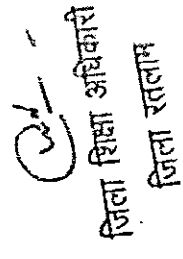 जिला शिक्षा अधिकारी
जिला रतलाम